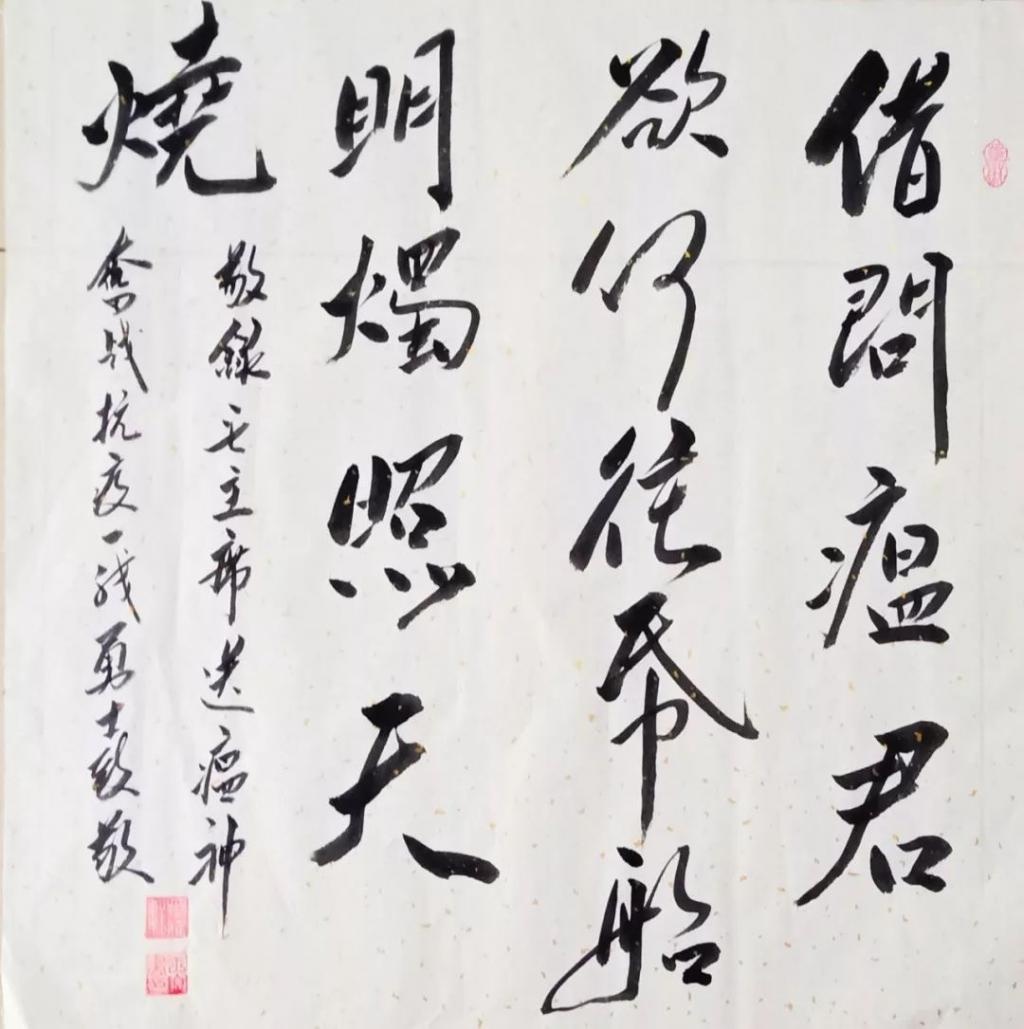 借問瘟君
欲何往帋船
明燭照天
燒
敬錄毛主席送瘟神
奮战抗疫一线勇士致敬